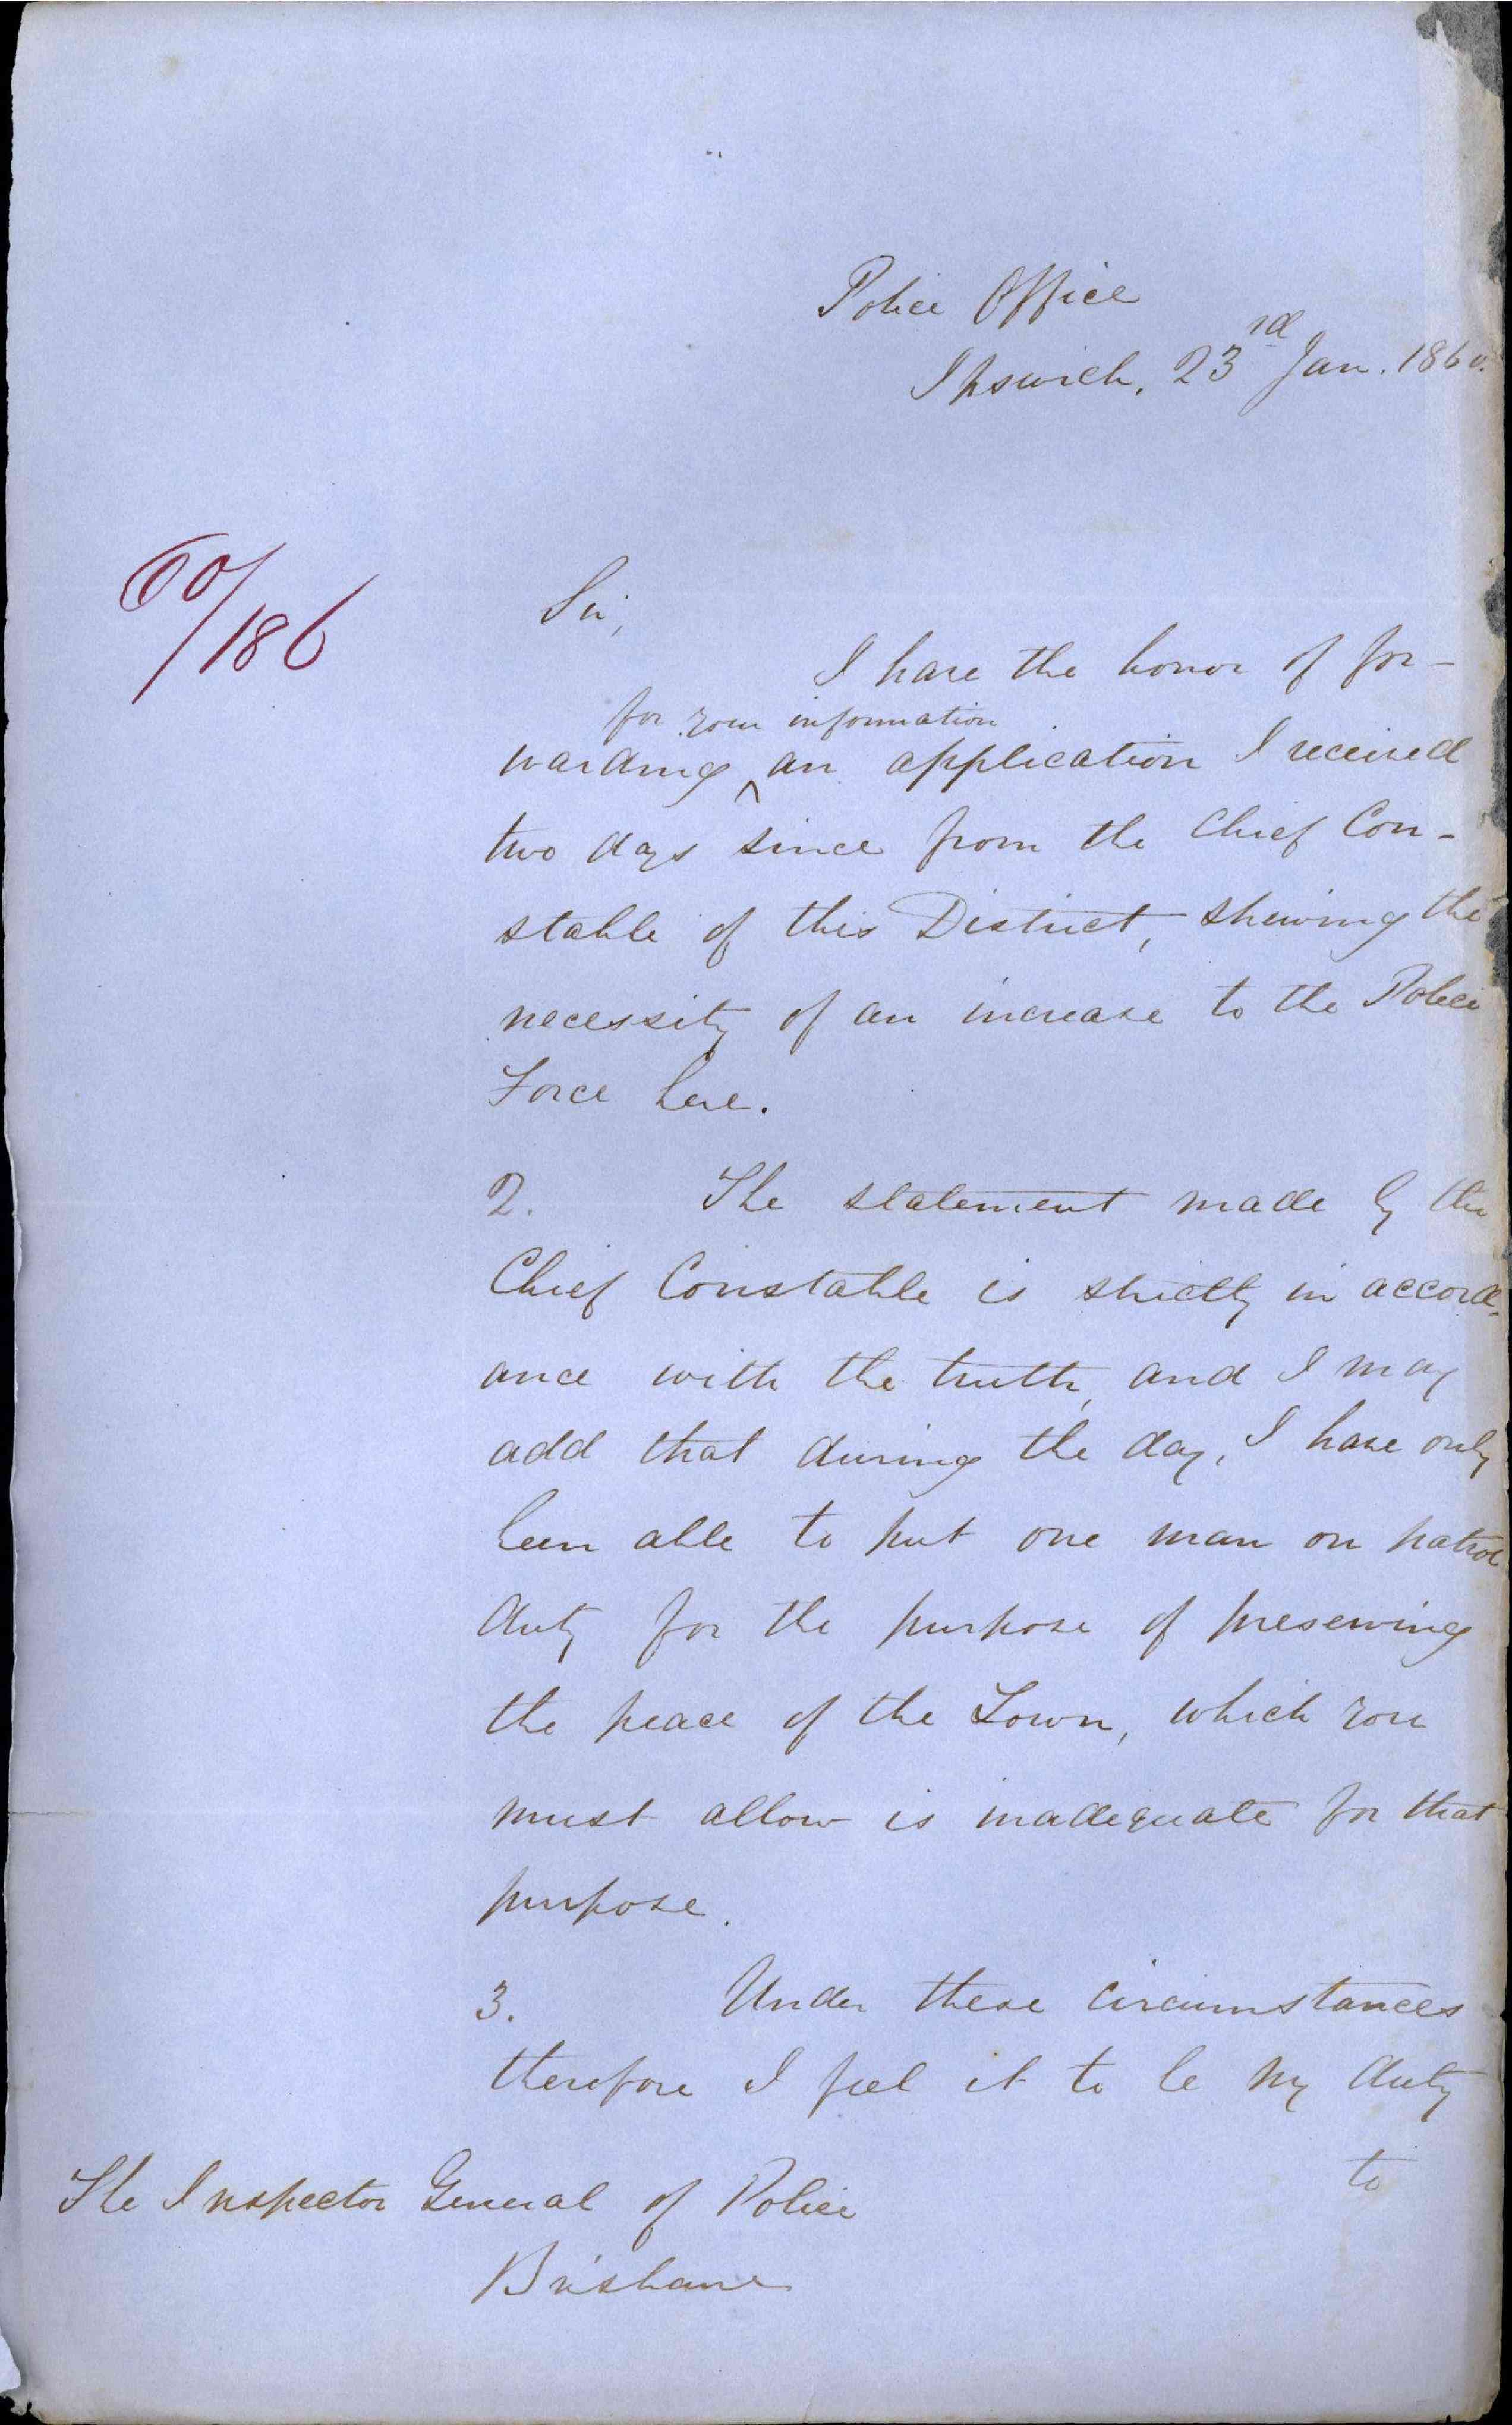 Police Office
Ipswich, 23rd Jan. 1860.
60/186
Sir,
I have the honor of for-
for your information
warding ^ an application I received
two days since from the Chief Con-
stable of this District, shewing the
necessity of an increase to the Police
Force here.
2. The statement made by the
Chief Constable is strictly in accord-
ance with the truth, and I may
add that during the day, I have only
been able to put one man on patrol
duty for the purpose of preserving
the peace of the Town, which you
must allow is inadequate for that
purpose.
3. Under these circumstances
therefore I feel it to be my duty
to
The Inspector General of Police
Brisbane